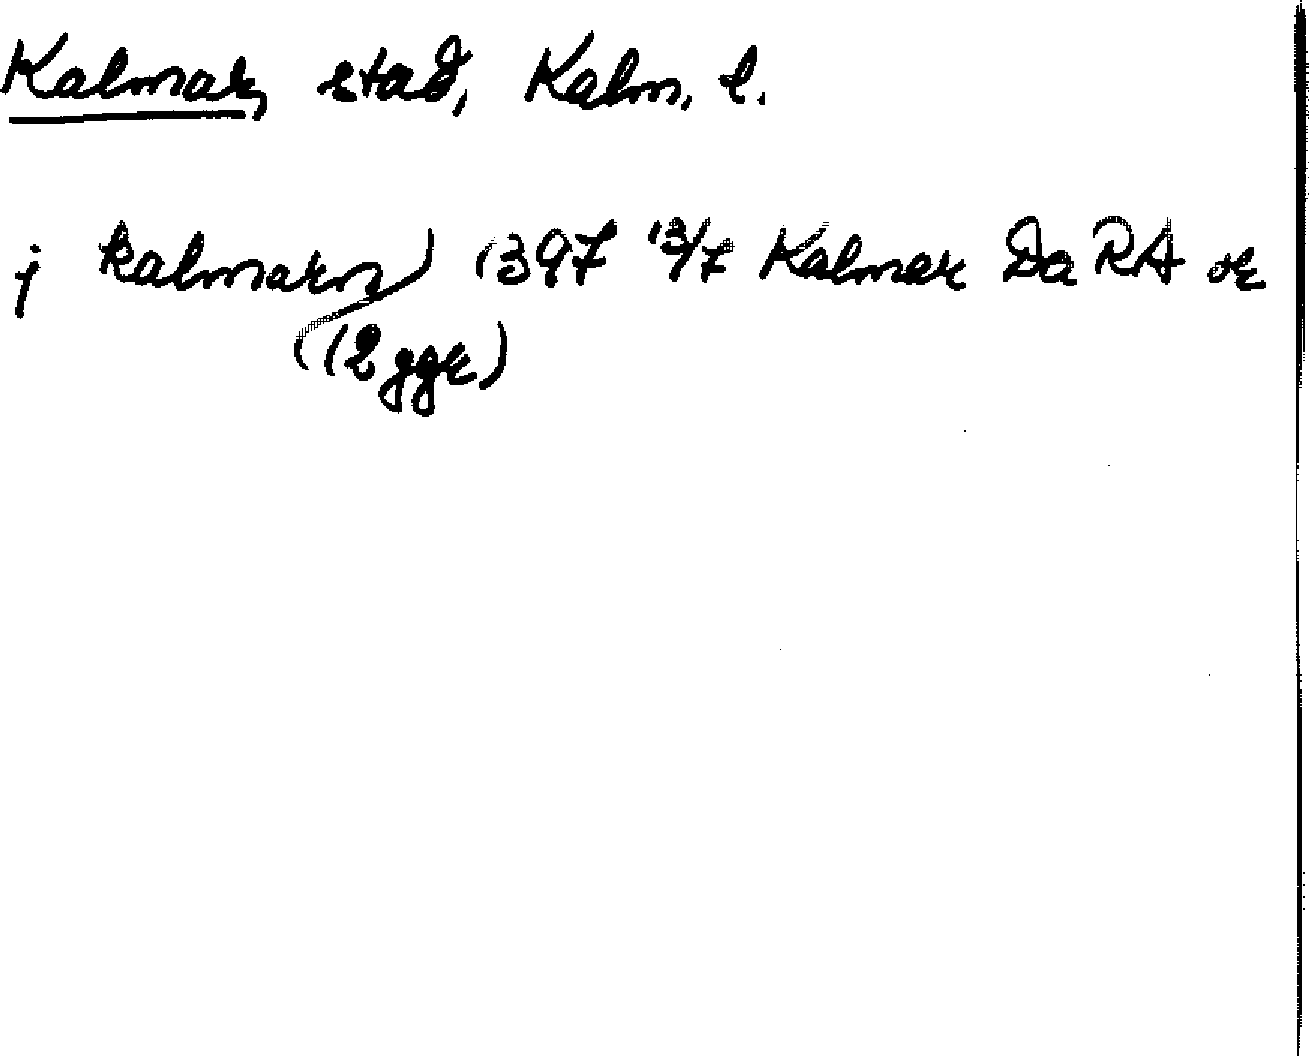 Kalmar, stad, Kalm. l.
j kalmarn 1397 13/7 Kalmar Da RA or
(2 ggr)